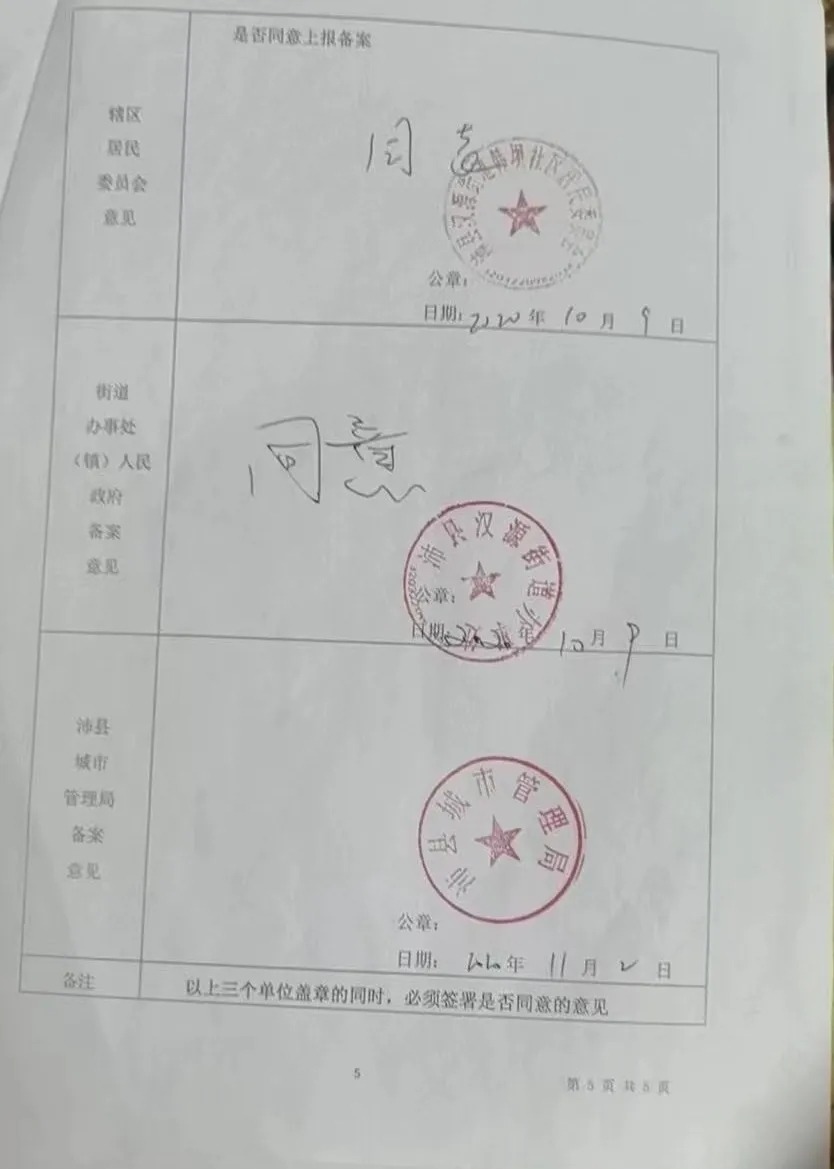 是否同意上报备案
辖区
居民
委员会
意见
同意
社区居民委员会
公章：
日期：2020年 10月 9日
街道
办事处
（镇）人民
政府
备案
意见
同意
沛县汉源街道办事处
公章：
日期： 年 10月 9日
沛县
城市
管理局
备案
意见
沛县城市管理局
公章：
日期： 年 11月 2日
备注
以上三个单位盖章的同时，必须签署是否同意的意见
5
第 5 页 共 5 页